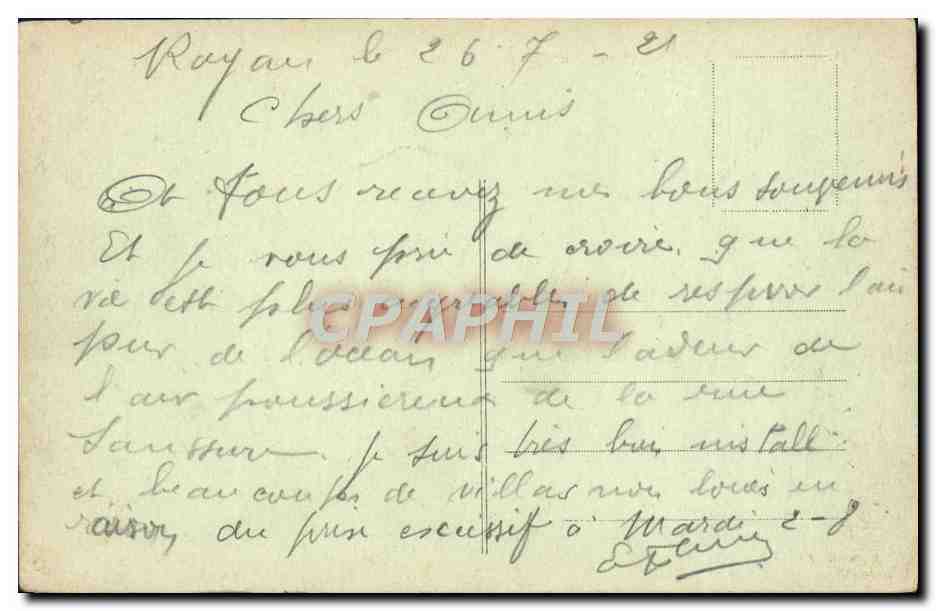 Royan le 26-7-21
Chers Amis
Et Tous recevez mes bons souvenirs
Et je vous prie de croire que la
vie est plus agreable de respirer l'air
pur de l'ocean que l'adeur de
l'air poussiereux de la rue
Saussure. je suis très bien installé
et beaucoup de villas non louées en
raison du prix excessif à Mardi 2-8
CPAPHIL